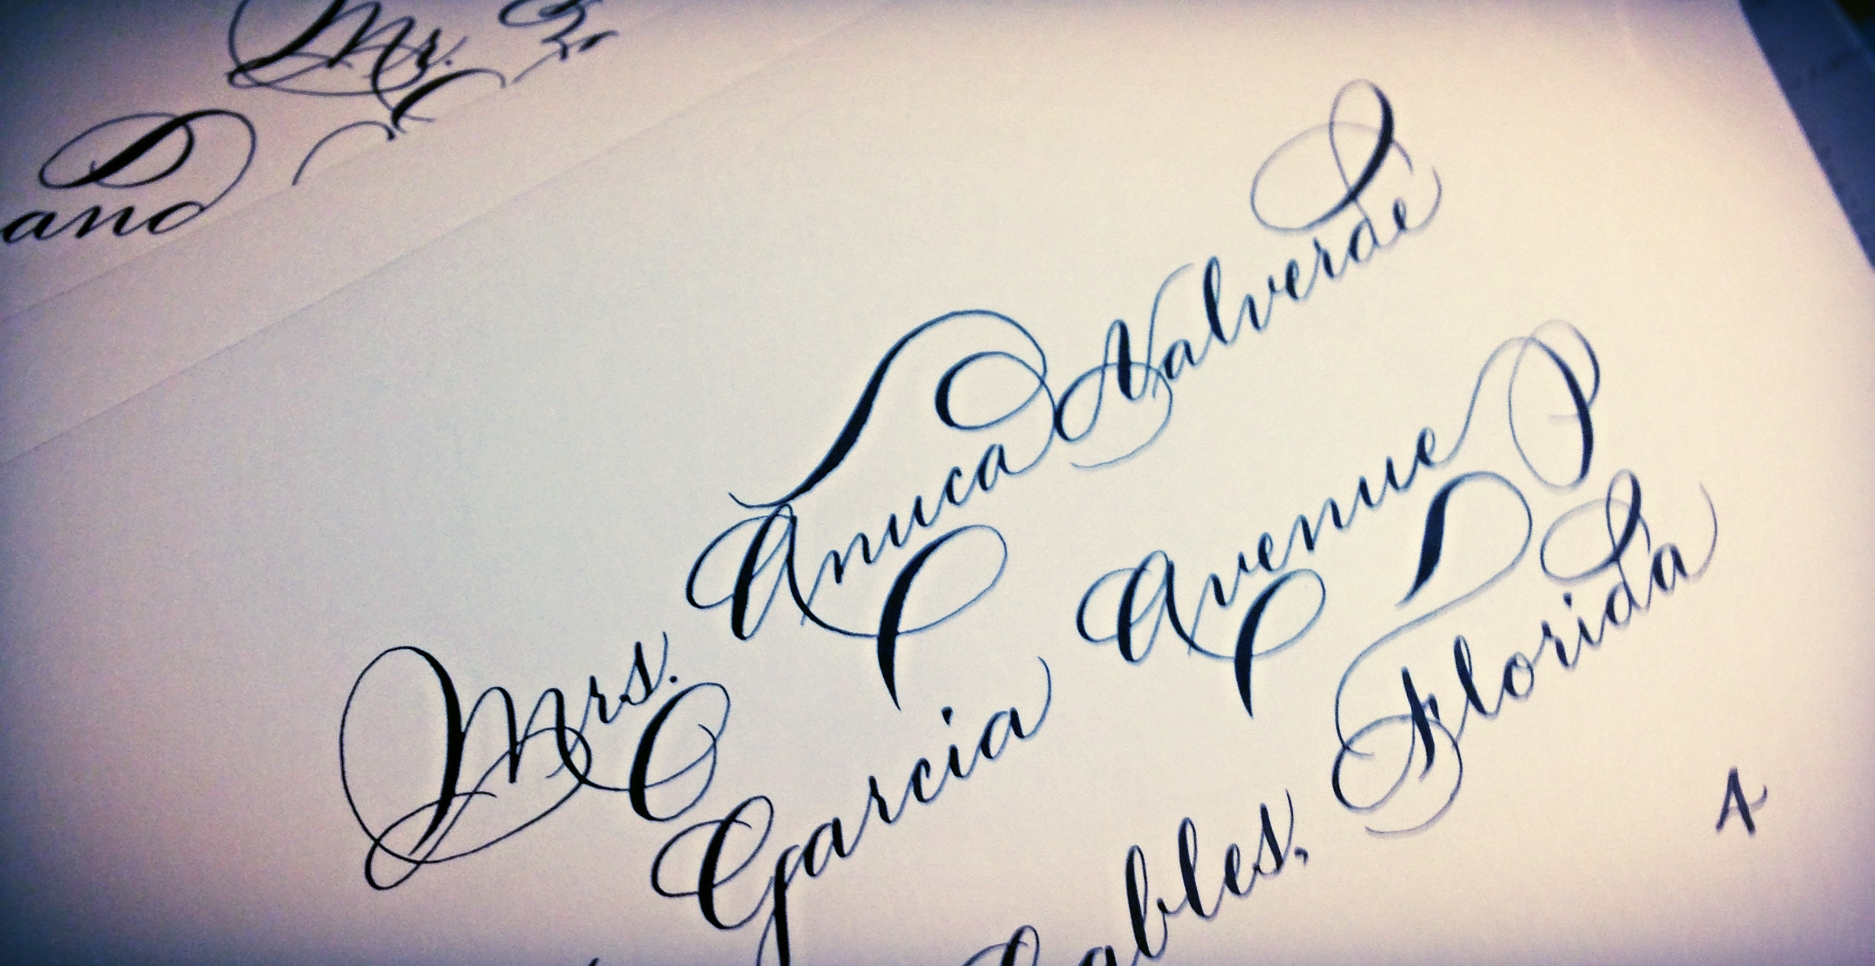 Mr.
and
Mrs. Anuca Valverde
Garcia Avenue P
Gables, Florida